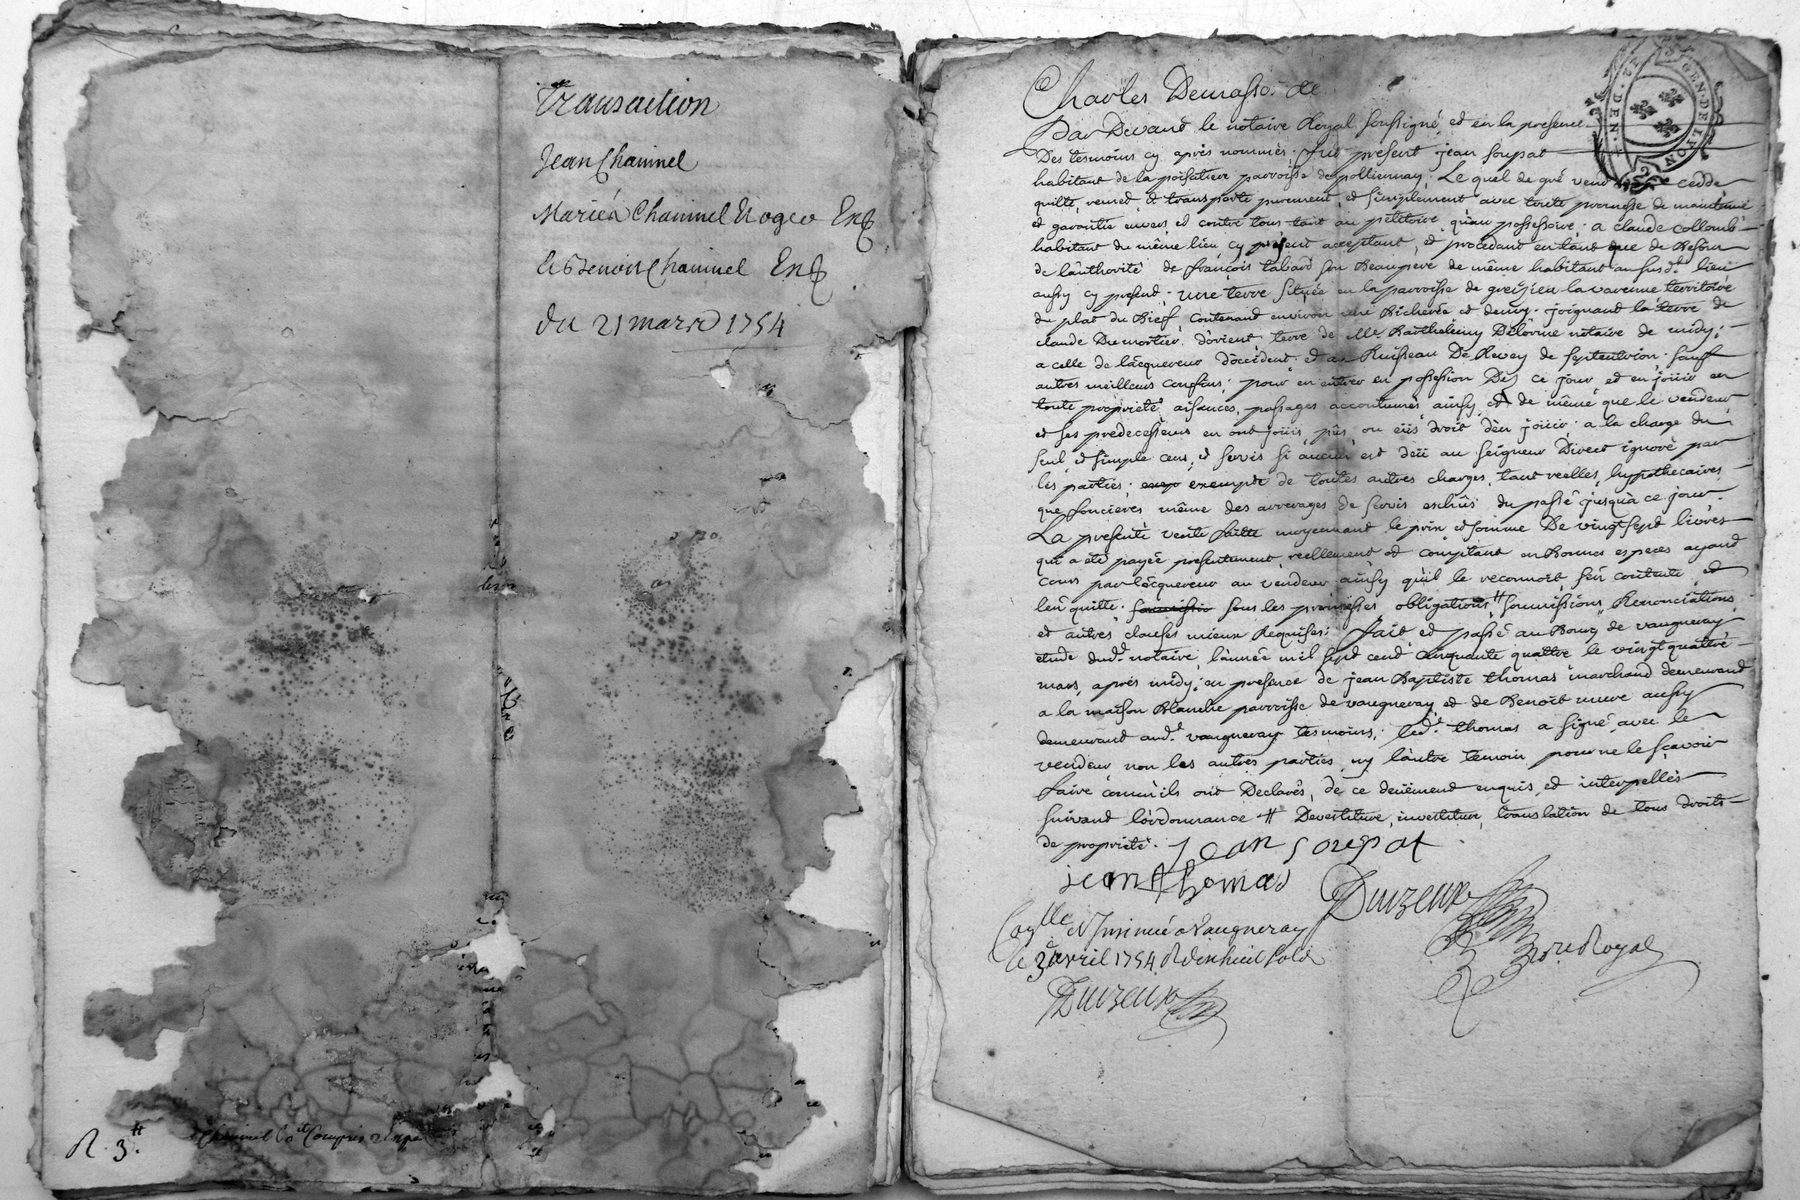 Transaction
Jean Chaninel
Mariea Chaninel
Benoist Chaninel
du 21 mars 1754
R. 3.
GEN. DE LYON
DEN.
Charles
Par Devant le notaire Royal soussigné, et en la presence
Des tesmoins cy après nommés. fut present jean soupat
habitant de la poisatiere parroisse de pollionnay. Le quel de gré vend cedde
quitte, remet et transporte purement, et simplement avec toute promesse de maintenir
et garantie envers, et contre tous tant au petitoire, qu'au possessoire; a claude collomb
habitant du même lieu cy present acceptant, et procedant en tant que de Besoin
de l'authorité de françois tabard son Beaupere de même habitant au susd.t lieu
aussy cy present; une terre située en la parroisse de greisieu la varenne territoire
du plat du Rief, contenant environ une Bicherée et demy. joignant la terre de
claude Dumortier d'orient, terre de Me. Barthelemy Delorme notaire de midy;
a celle de l'acquereur d'occident; et au Ruisseau De Revey de septentrion. sauf
autres meilleurs confins; pour en entrer en possession Dès ce jour et en jouir en
toute proprieté, aisances, passages accoutumés ainsy, et de même que le vendeur
et ses predecesseurs en ont jouis, pûs, ou eüs droit d'en jouir. a la charge du
seul, et simple cens, et servis si aucun est deü au seigneur Direct ignoré par
les parties; exempte de toutes autres charges, tant reelles, hypothecaires
que foncieres même des arrerages de servis eschûs du passé jusqu'a ce jour.
La presente vente faitte moyennant le prix et somme De vingt sept livres
qui a été payée presentement, reellement et comptant en Bonnes especes ayant
cours par l'acquereur au vendeur ainsy qu'il le reconnoit, s'en contente, et
l'en quitte. sous les promesses obligations # soumissions, Renonciations
et autres clauses mieux Requises; fait et passé au Bourg de vaugneray
étude dud.t notaire, l'année mil sept cent cinquante quattre le vingt quattre
mars, après midy; en presence de jean Baptiste thomas marchand demeurant
a la maison Blanche parroisse de vaugneray, et de Benoît aussy
demeurant aud.t vaugneray tesmoins; led.t thomas a signé, avec le
vendeur non les autres parties, ny l'autre temoin pour ne le sçavoir
faire comm'ils ont Declarés, de ce deüement enquis, et interpellés
suivant l'ordonnance # Devestiture, investiture, translation de tous droits
de proprieté.
jean soupat
jean thomas
Duizeux
nore Royal
et Insinué a Vaugneray
le 3 avril 1754
Duizeux